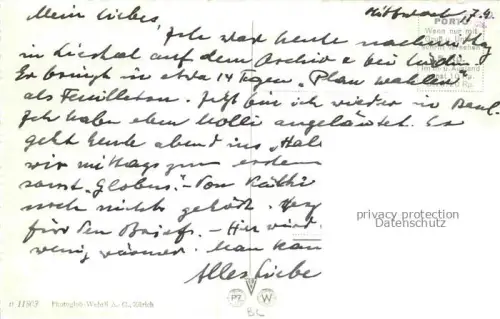 Mittwoch 17.9.
Mein Liebes,
PORTO
Wenn nur mit
Ich war heute nachmittag
in Liestal auf dem Archiv & bei
Er bringt in etwa 14 Tagen „Plan wahlen“
als Feuilleton. Jetzt bin ich wieder in Basel.
Ich habe eben Molli angeläutet. Es
geht heute abend ins „Hal
wir mittags zum ersten
sonst „Globus“. – Von Käthi
noch nichts gehört.
für den Brief. – Hier wird
wenig wärmer. Man kann
Alles Liebe
privacy protection
Datenschutz
n 11803 Photoglob-Wehrli A. G., Zürich
PZ W
BL